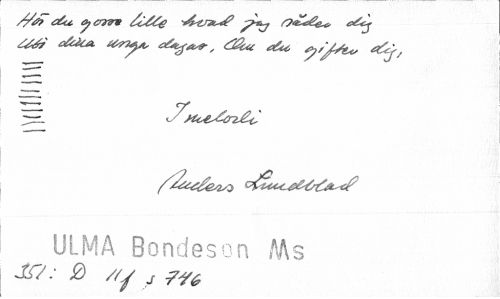 Hör du gosse lille hvad jag råder dig
Uti dina unga dagar, Om du gifter dig,
1 melodi
Anders Lundblad
ULMA Bondeson Ms
351: D 11f s 746